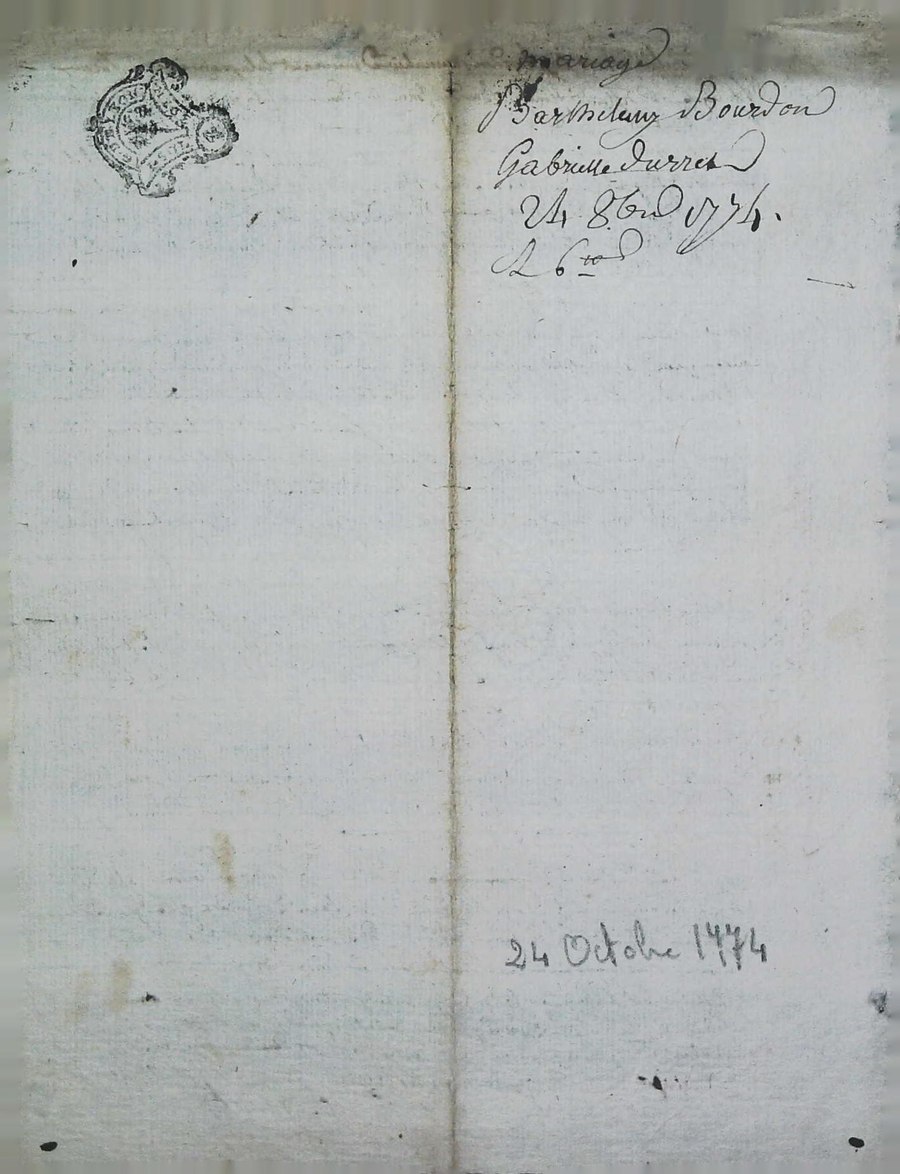 mariage
Barthelemy Bourdon
Gabrielle Durret
24 8bre 1774.
24 Octobre 1774